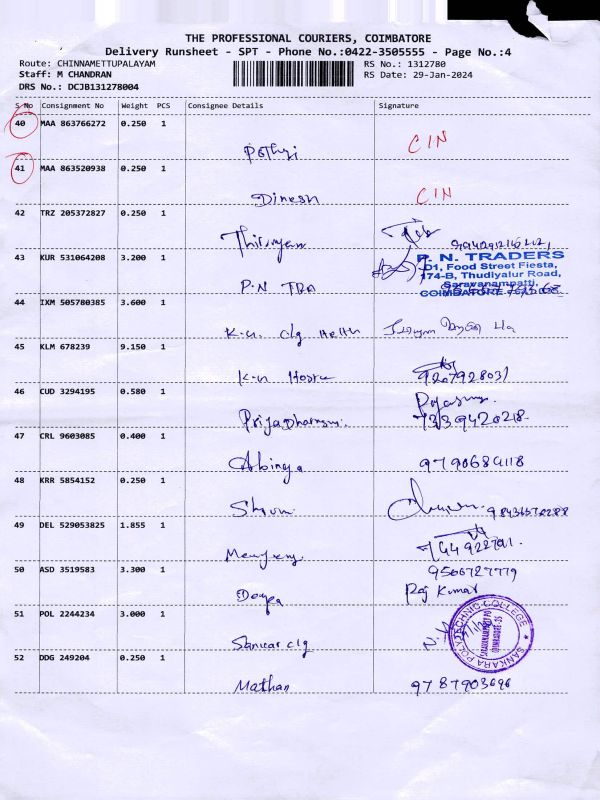 THE PROFESSIONAL COURIERS, COIMBATORE
Delivery Runsheet - SPT - Phone No.:0422-3505555 - Page No.:4
Route: CHINNAMETTUPALAYAM RS No.: 1312780
Staff: M CHANDRAN RS Date: 29-Jan-2024
DRS No.: DCJB131278004
S No Consignment No Weight PCS Consignee Details Signature
40 MAA 863766272 0.250 1
CIN
41 MAA 863520938 0.250 1
Dinesh CIN
42 TRZ 205372827 0.250 1
43 KUR 531064208 3.200 1
P.N. TRADERS
D1, Food Street Fiesta,
174-B, Thudiyalur Road,
Saravanampatti,
P.N TRA COIMBATORE
44 IXM 505780385 3.600 1
45 KLM 678239 9.150 1
9207928031
46 CUD 3294195 0.580 1
7339420218
47 CRL 9603085 0.400 1
Abinya
48 KRR 5854152 0.250 1
49 DEL 529053825 1.855 1
50 ASD 3519583 3.300 1 9566727779
Raj Kumar
51 POL 2244234 3.000 1
SANKARA POLYTECHNIC COLLEGE
SARAVANAMPATTI PO
COIMBATORE-35
52 DDG 249204 0.250 1
Mathan 9787903696